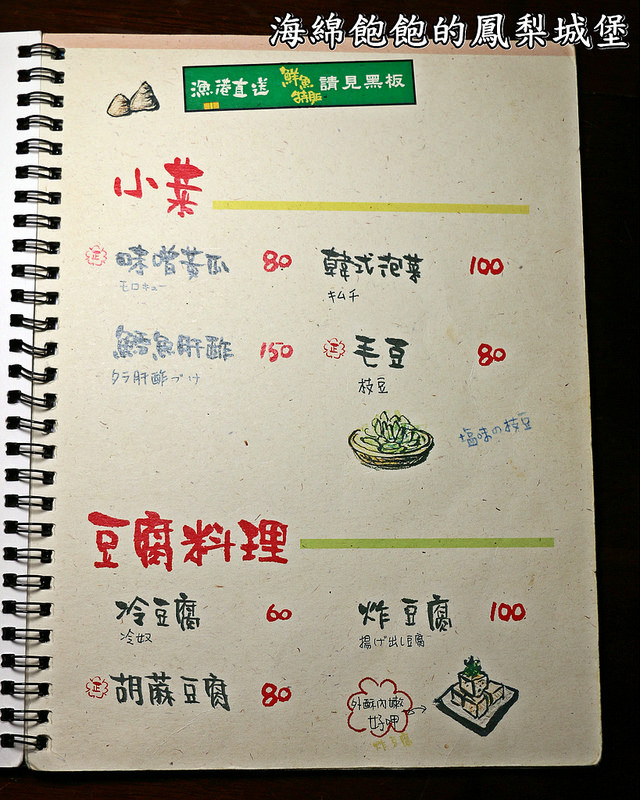 海綿飽飽的鳳梨城堡
漁港直送 鮮魚特販 請見黑板
小菜
正 味噌黃瓜 80
モロキュー
韓式泡菜 100
キムチ
鱈魚肝酢 150
タラ肝酢づけ
正 毛豆 80
枝豆
塩味の枝豆
豆腐料理
冷豆腐 60
冷奴
炸豆腐 100
揚げ出し豆腐
正 胡蔴豆腐 80
外酥內嫩
好呷
炸豆腐